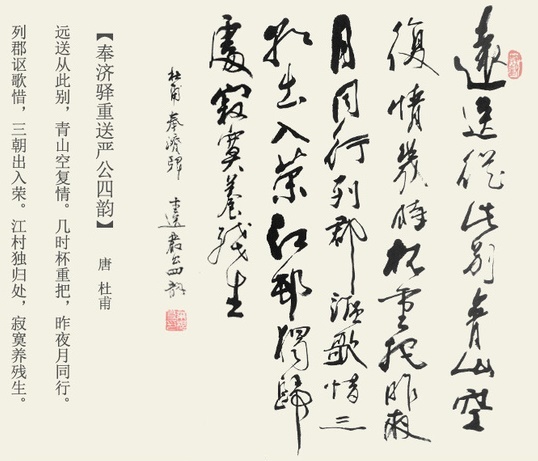 遠送從此別青山空
復情幾時杯重把昨夜
月同行列郡謳歌惜三
朝出入榮江邨獨歸
處寂寞養殘生
杜甫奉濟驛重送嚴公四韵
【奉济驿重送严公四韵】 唐 杜甫
远送从此别，青山空复情。几时杯重把，昨夜月同行。
列郡讴歌惜，三朝出入荣。江村独归处，寂寞养残生。